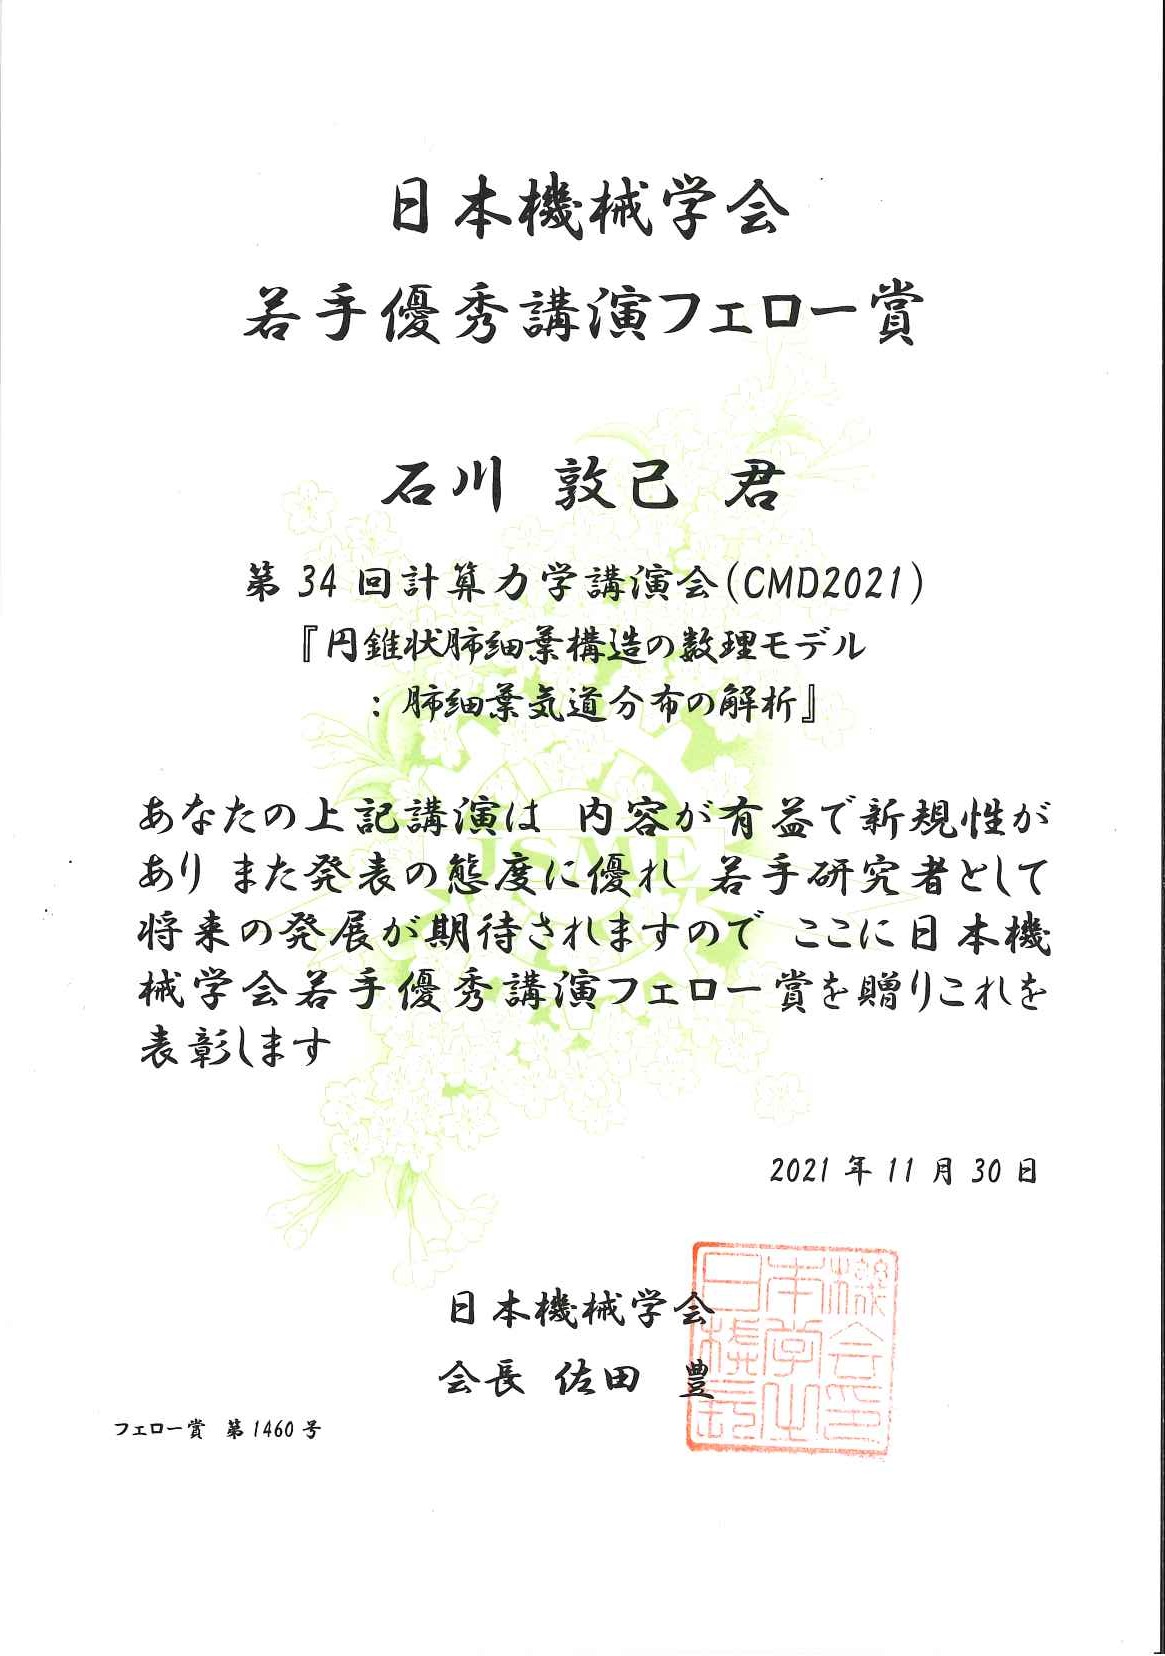 日本機械学会
若手優秀講演フェロー賞
石川 敦己 君
第34回計算力学講演会(CMD2021)
『円錐状肺細葉構造の数理モデル
：肺細葉気道分布の解析』
あなたの上記講演は 内容が有益で新規性が
あり また発表の態度に優れ 若手研究者として
将来の発展が期待されますので ここに日本機
械学会若手優秀講演フェロー賞を贈りこれを
表彰します
JSME
2021年11月30日
日本機械学会
会長 佐田 豊
フェロー賞 第1460号